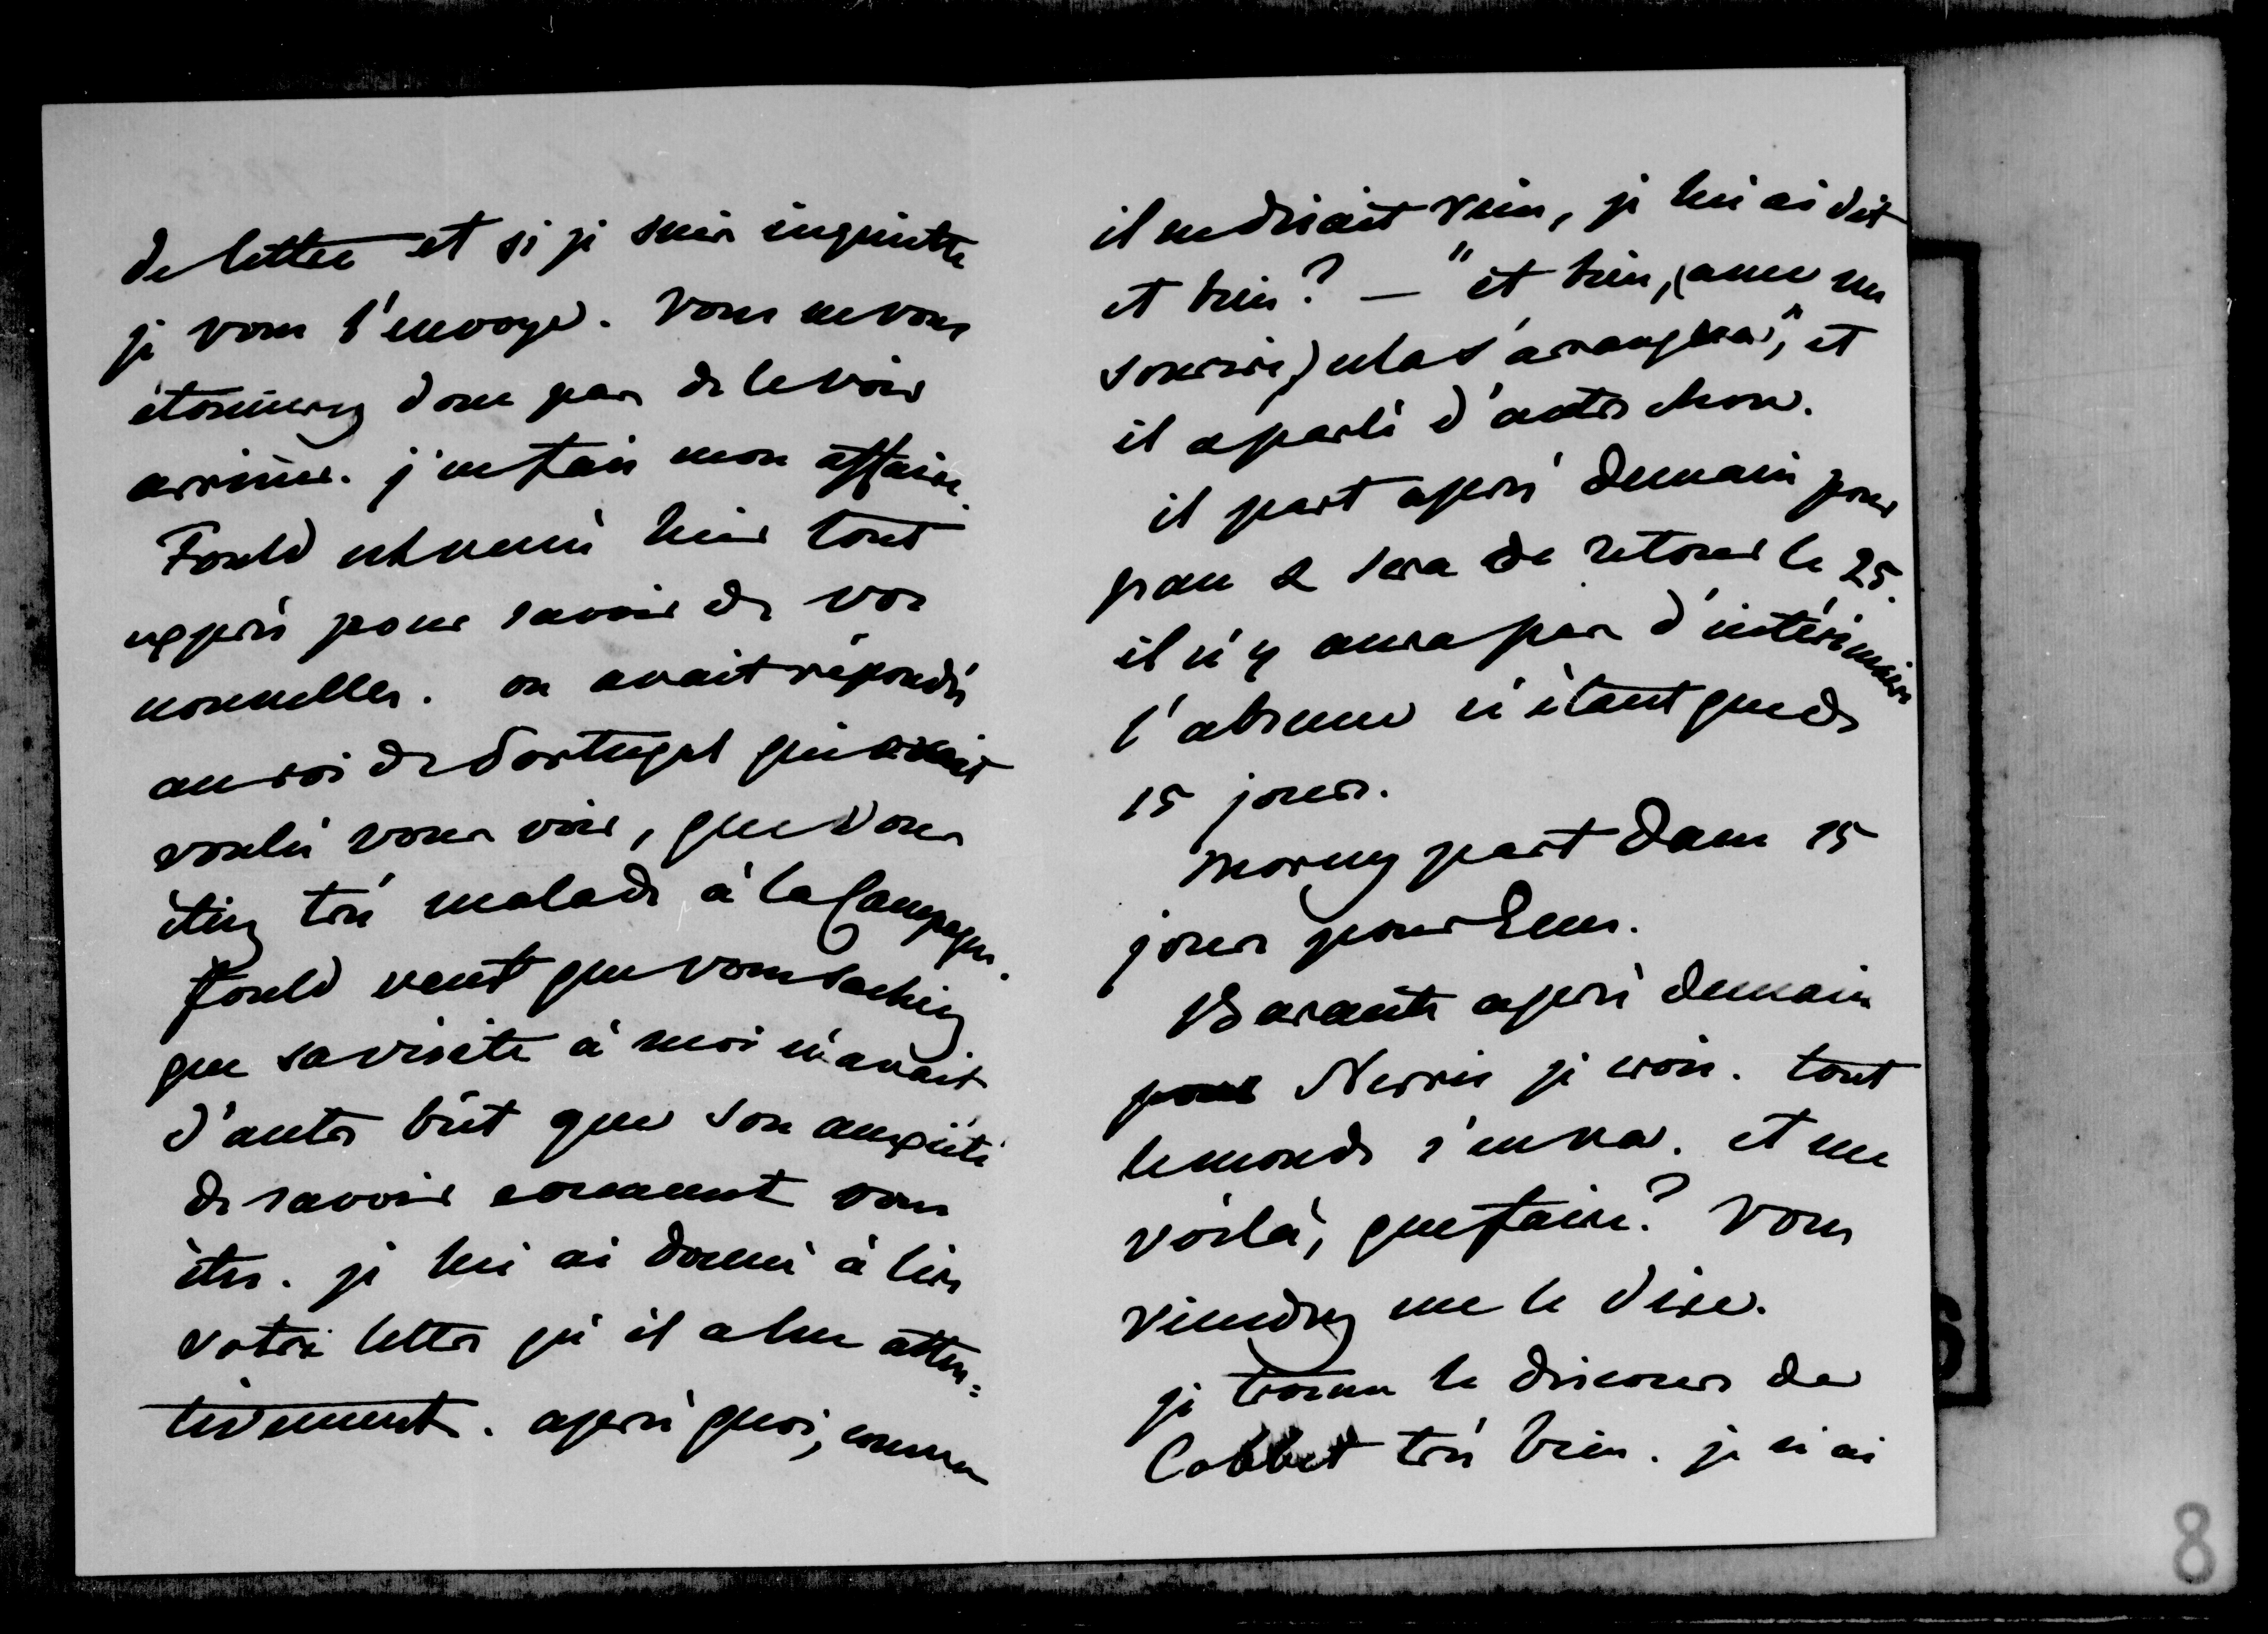 de lettre et si je suis inquiète
je vous l'envoye. Vous ne vous
étonnerez donc pas de le voir
arriver. j'en fais mon affaire.
Fould est venu hier tout
exprès pour savoir de vos
nouvelles. on avait répondu
au roi de Portugal qui avait
voulu vous voir, que vous
étiez très malade à la Campagne.
fould veut que vous sachiez
que sa visite à moi n'avait
d'autre bût que son anxiété
de savoir comment vous
êtes. je lui ai donné à lire
votre lettre qu'il a lue atten=
tivement. après quoi, comme
il ne disait rien, je lui ai dit
et bien? — "et bien, (avec un
sourire) cela s'arrangera", et
il a parlé d'autre chose.
il part après demain pour
pau & sera de retour le 25.
il n'y aura pas d'intérimaire
l'absence n'étant que de
15 jours.
Morny part dans 15
jours pour Ems.
Barante après demain
pour Nerris je crois. tout
le monde s'en va. et me
voilà, que faire? Vous
viendrez me le dire.
je trouve le discours de
Cobbet très bien. je n'ai
8